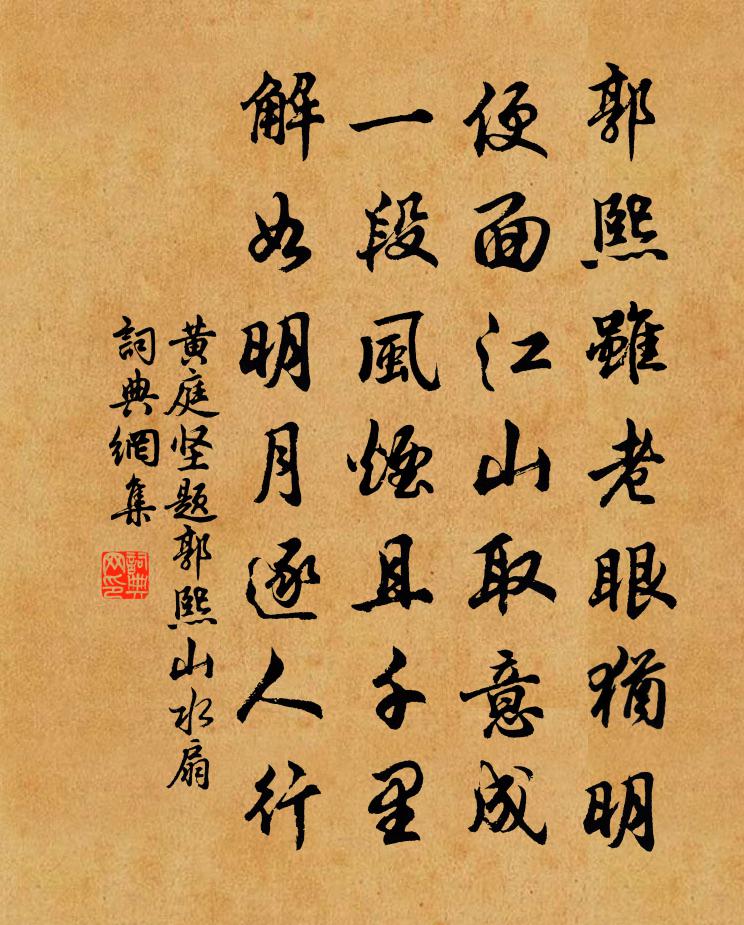 郭熙雖老眼猶明
便面江山取意成
一段風煙且千里
解如明月逐人行
黄庭坚题郭熙山水扇
詞典網集
詞典网印